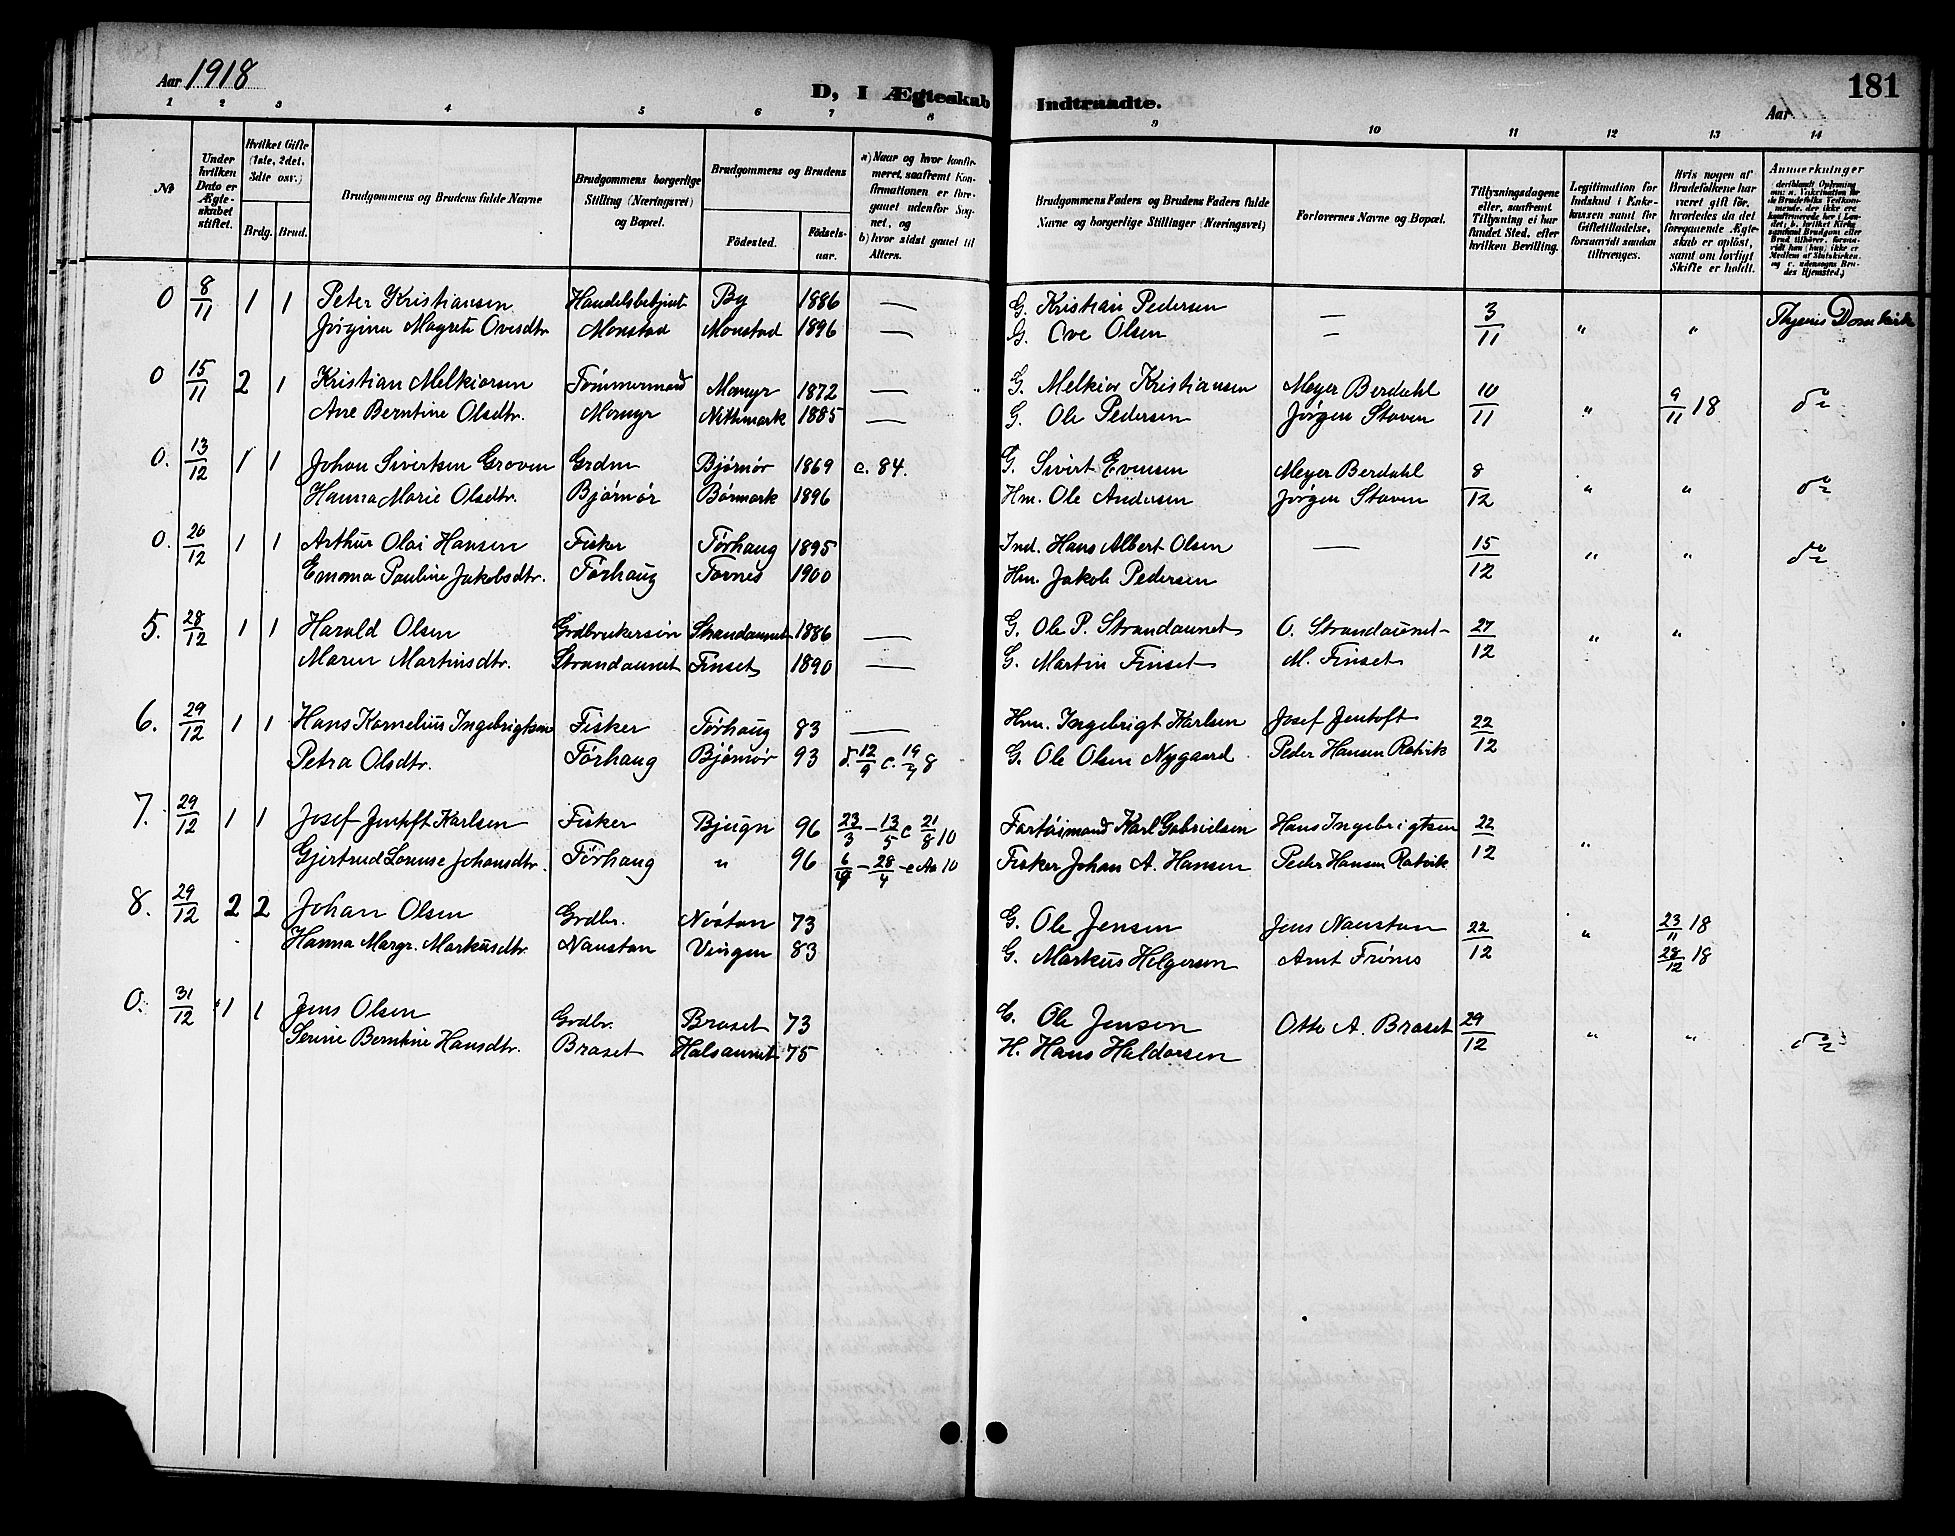 Aar 1918
D, I Ægteskab Indtraadte.
Aar
181
1 2 3 4 5 6 7 8 9 10 11 12 13 14
No
Under hvilken Dato er Ægteskabet stiftet.
Hvilket Gifte (1ste, 2det, 3dte osv.)
Brdg. Brud.
Brudgommens og Brudens fulde Navne
Brudgommens borgerlige Stilling (Næringsvei) og Bopæl.
Brudgommens og Brudens
Fødested. Fødselsaar.
a) Naar og hvor konfirmeret, saafremt Konfirmationen er foregaaet udenfor Sognet, og
b) hvor sidst gaaet til Alters.
Brudgommens Faders og Brudens Faders fulde Navne og borgerlige Stillinger (Næringsvei)
Forlovernes Navne og Bopæl.
Tillysningsdagene eller, saafremt Tillysning ei har fundet Sted, efter hvilken Bevilling.
Legitimation for Indskud i Enkekassen samt for Giftetilladelse, forsaavidt saadan tiltrænges.
Hvis nogen af Brudefolkene har været gift før, hvorledes da det foregaaende Ægteskab er opløst, samt om lovligt Skifte er holdt.
Anmærkninger
0 8/11 1 1 Peter Kristiansen Handelsbetjent By 1886 — G. Kristian Pedersen — 3/11 " " Thjems Domkirk
Jørgine Magrete Ovesdtr Monstad Monstad 1896 — G. Ove Olsen —
0 15/11 2 1 Kristian Melkiorsen Tømmermand Momyr 1872 — G. Melkior Kristiansen Meyer Berdahl 10/11 " 9/11 18 do
Ane Berntine Olsdtr. Momyr Nethmark 1885 — G. Ole Pedersen Jørgen Staven
0. 13/12 1 1 Johan Sivertsen Groven Grdm Bjørnør 1869 c. 84. G. Sivirt Evensen Meyer Berdahl 8/12 " " do
Hanna Marie Olsdtr. Bjørnør Børmark 1896 Hm. Ole Andersen Jørgen Staven
0. 20/12 1 1 Arthur Olai Hansen Fisker Tørhaug 1895 Ind. Hans Albert Olsen — 15/12 " " do
Emma Pauline Jakobsdtr. Tørhaug Tornes 1900 Hm. Jakob Pedersen
5. 28/12 1 1 Harald Olsen Grdbrukersøn Strandaunet 1886 — G. Ole P. Strandaunet O. Strandaunet 27/12 " "
Maren Martinsdtr. Strandaunet Finset 1890 — G. Martin Finset M. Finset
6. 29/12 1 1 Hans Kornelius Ingebrigtsen Fisker Tørhaug 83 — Hm. Ingebrigt Karlsen Josef Jentoft 22/12
Petra Olsdtr. Tørhaug Bjørnør 93 d. 12/9 c. 19/7 8 G. Ole Olsen Nygaard Peder Hansen Ratvik
7. 29/12 1 1 Josef Jentoft Karlsen Fisker Bjugn 96 23/3 – 13/5 c 21/8 10 Fortøimand Karl Gabrielsen Hans Ingebrigtsen 22/12 "
Gjertrud Lovise Johansdtr. Tørhaug " 96 – 28/4 – c 10 Fisker Johan A. Hansen Peder Hansen Ratvik
8. 29/12 2 2 Johan Olsen Grdbr. Nøstan 73 G. Ole Jensen Jens Naustan 22/12 " 23/11 18
Hanna Margr. Markusdtr. Naustan Vingen 83 G. Markus Helgersen Arnt Frønes 28/12 18
0. 31/12 1 1 Jens Olsen Grdbr. Braset 73 G. Ole Jenson Otto A. Braset 29/12 " " do
Serine Berntine Hansdtr. Braset Halsaunet 75 H. Hans Haldorsen